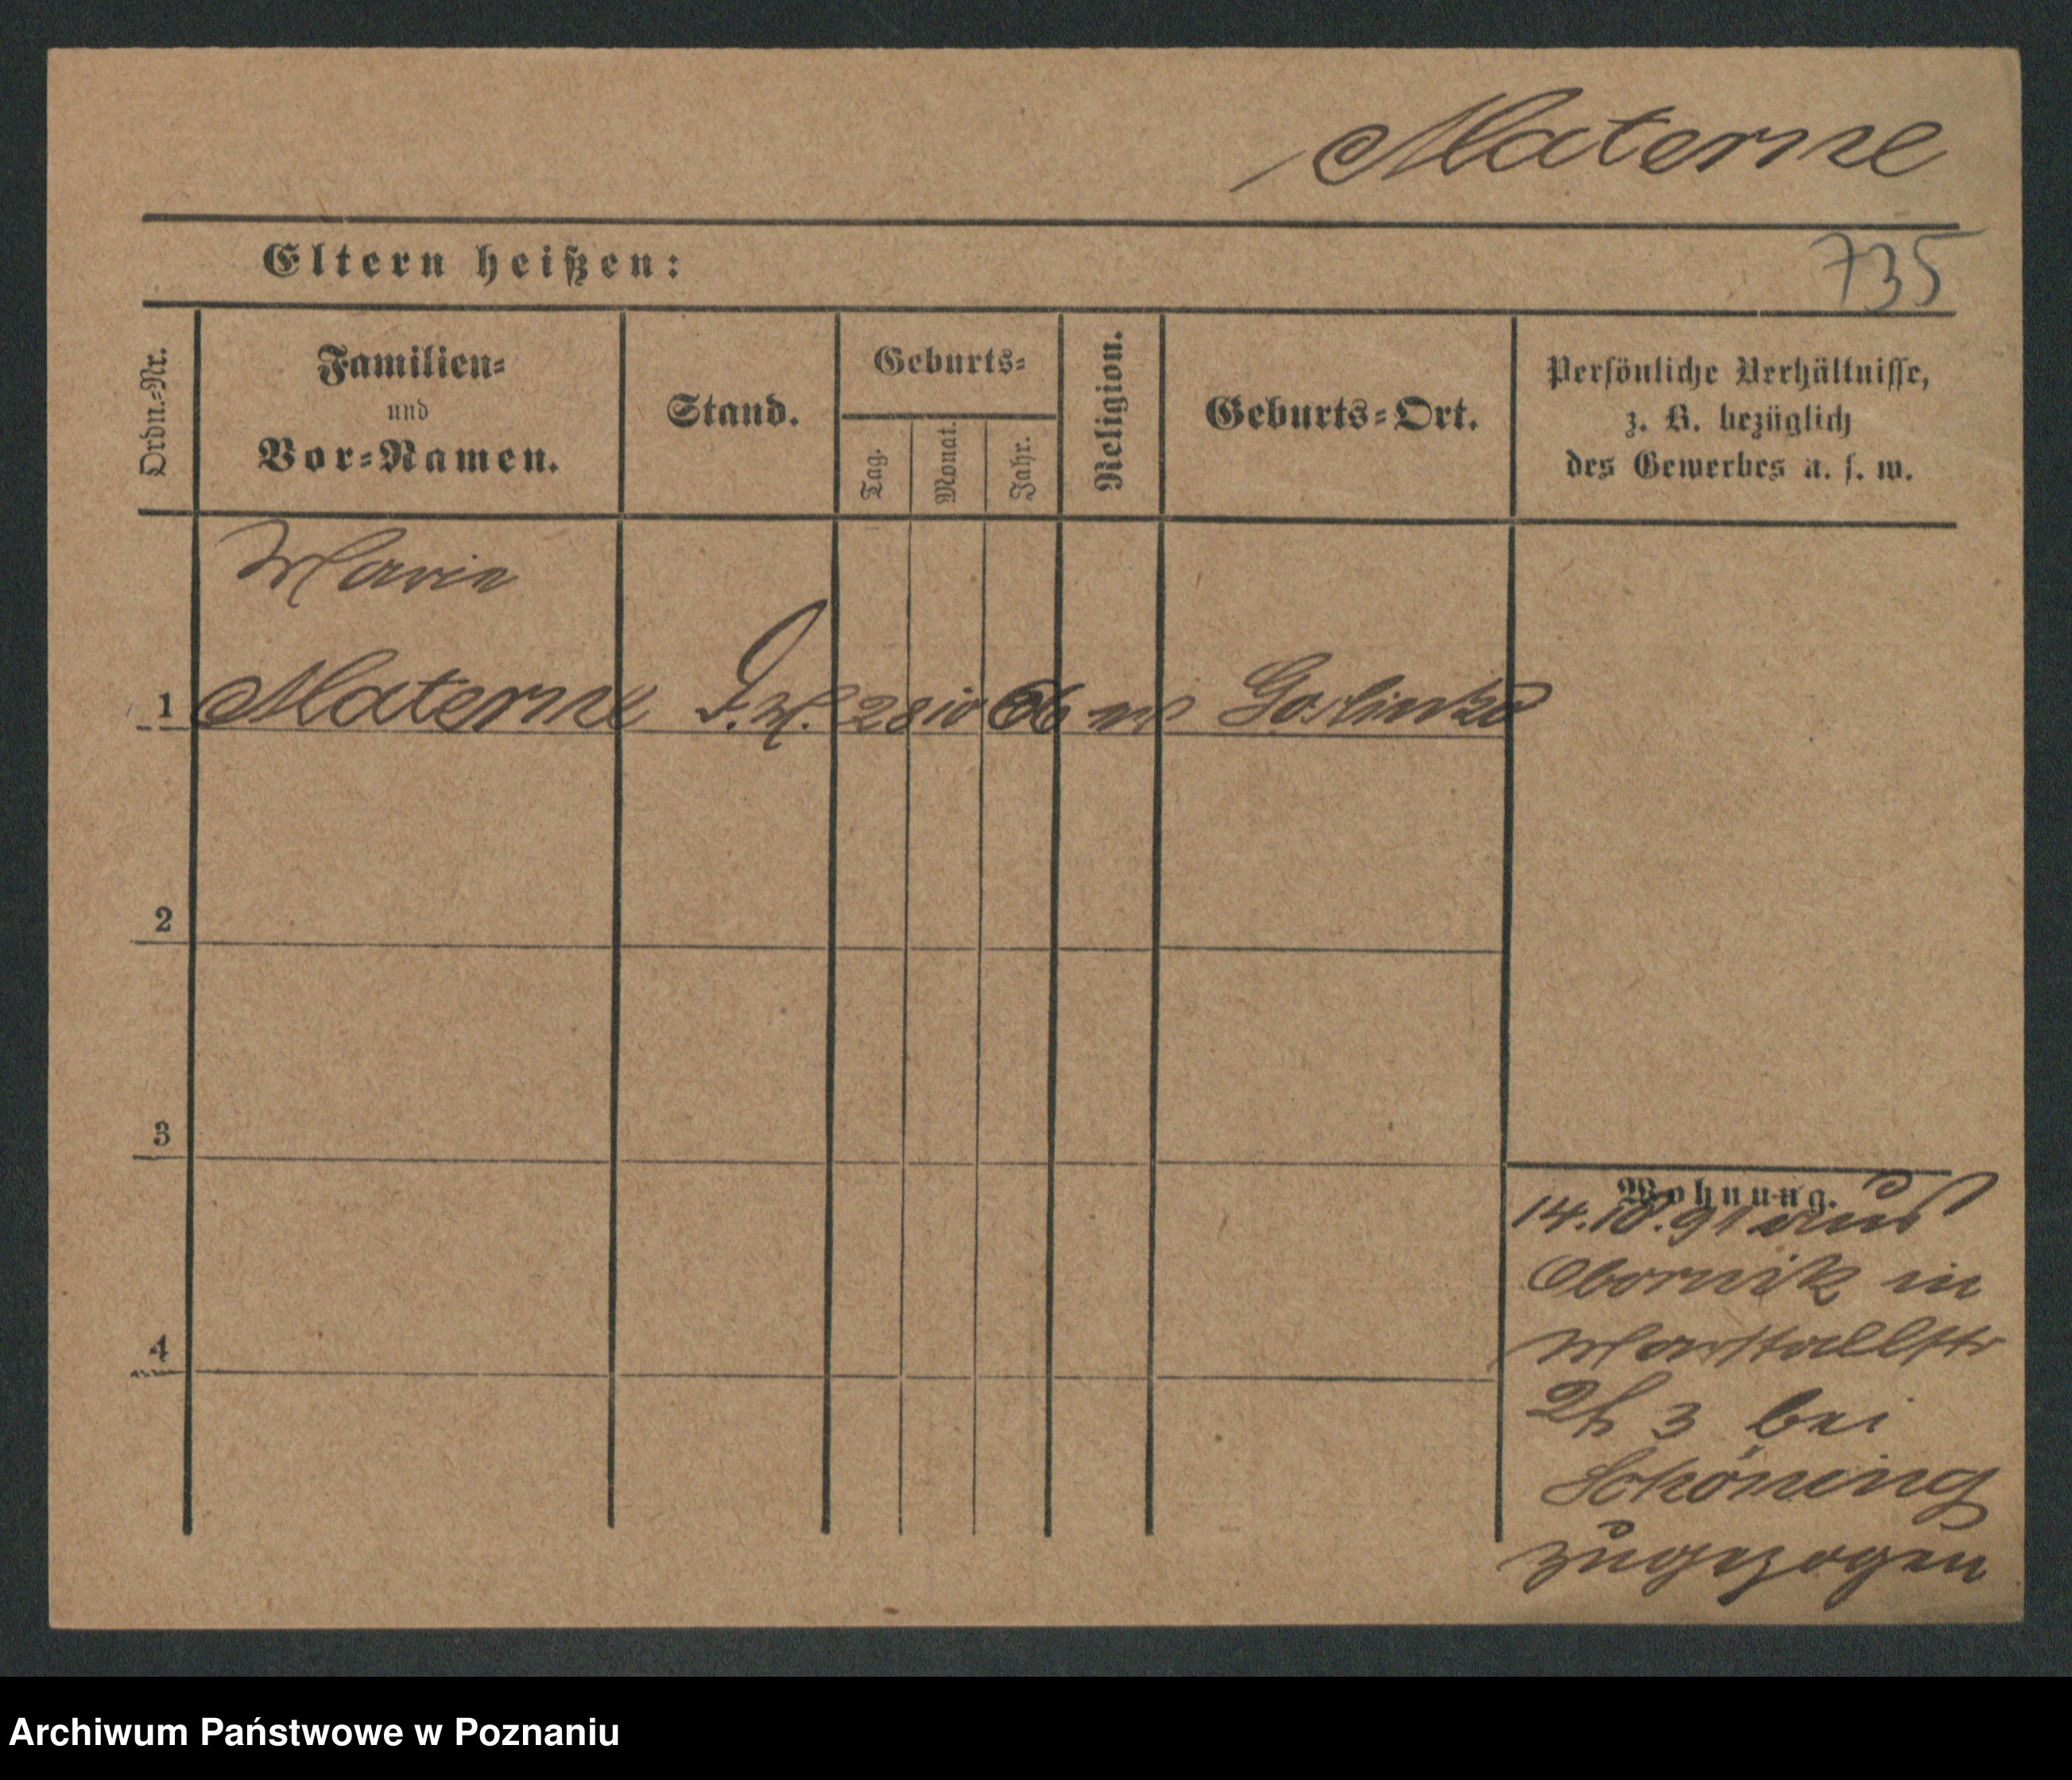 Materne
Eltern heißen:
735
Ordn.-Nr.
Familien-
und
Vor-Namen.
Stand.
Geburts-
Tag.
Monat.
Jahr.
Religion.
Geburts-Ort.
Persönliche Verhältnisse,
z. B. bezüglich
des Gewerbes u. s. w.
Marie
1 Materne 28 10 66 Goslinka
2
3
4
Wohnung.
14.10.91 aus
Obornik in
Marstallstr
3 bei
Schöning
zugezogen
Archiwum Państwowe w Poznaniu